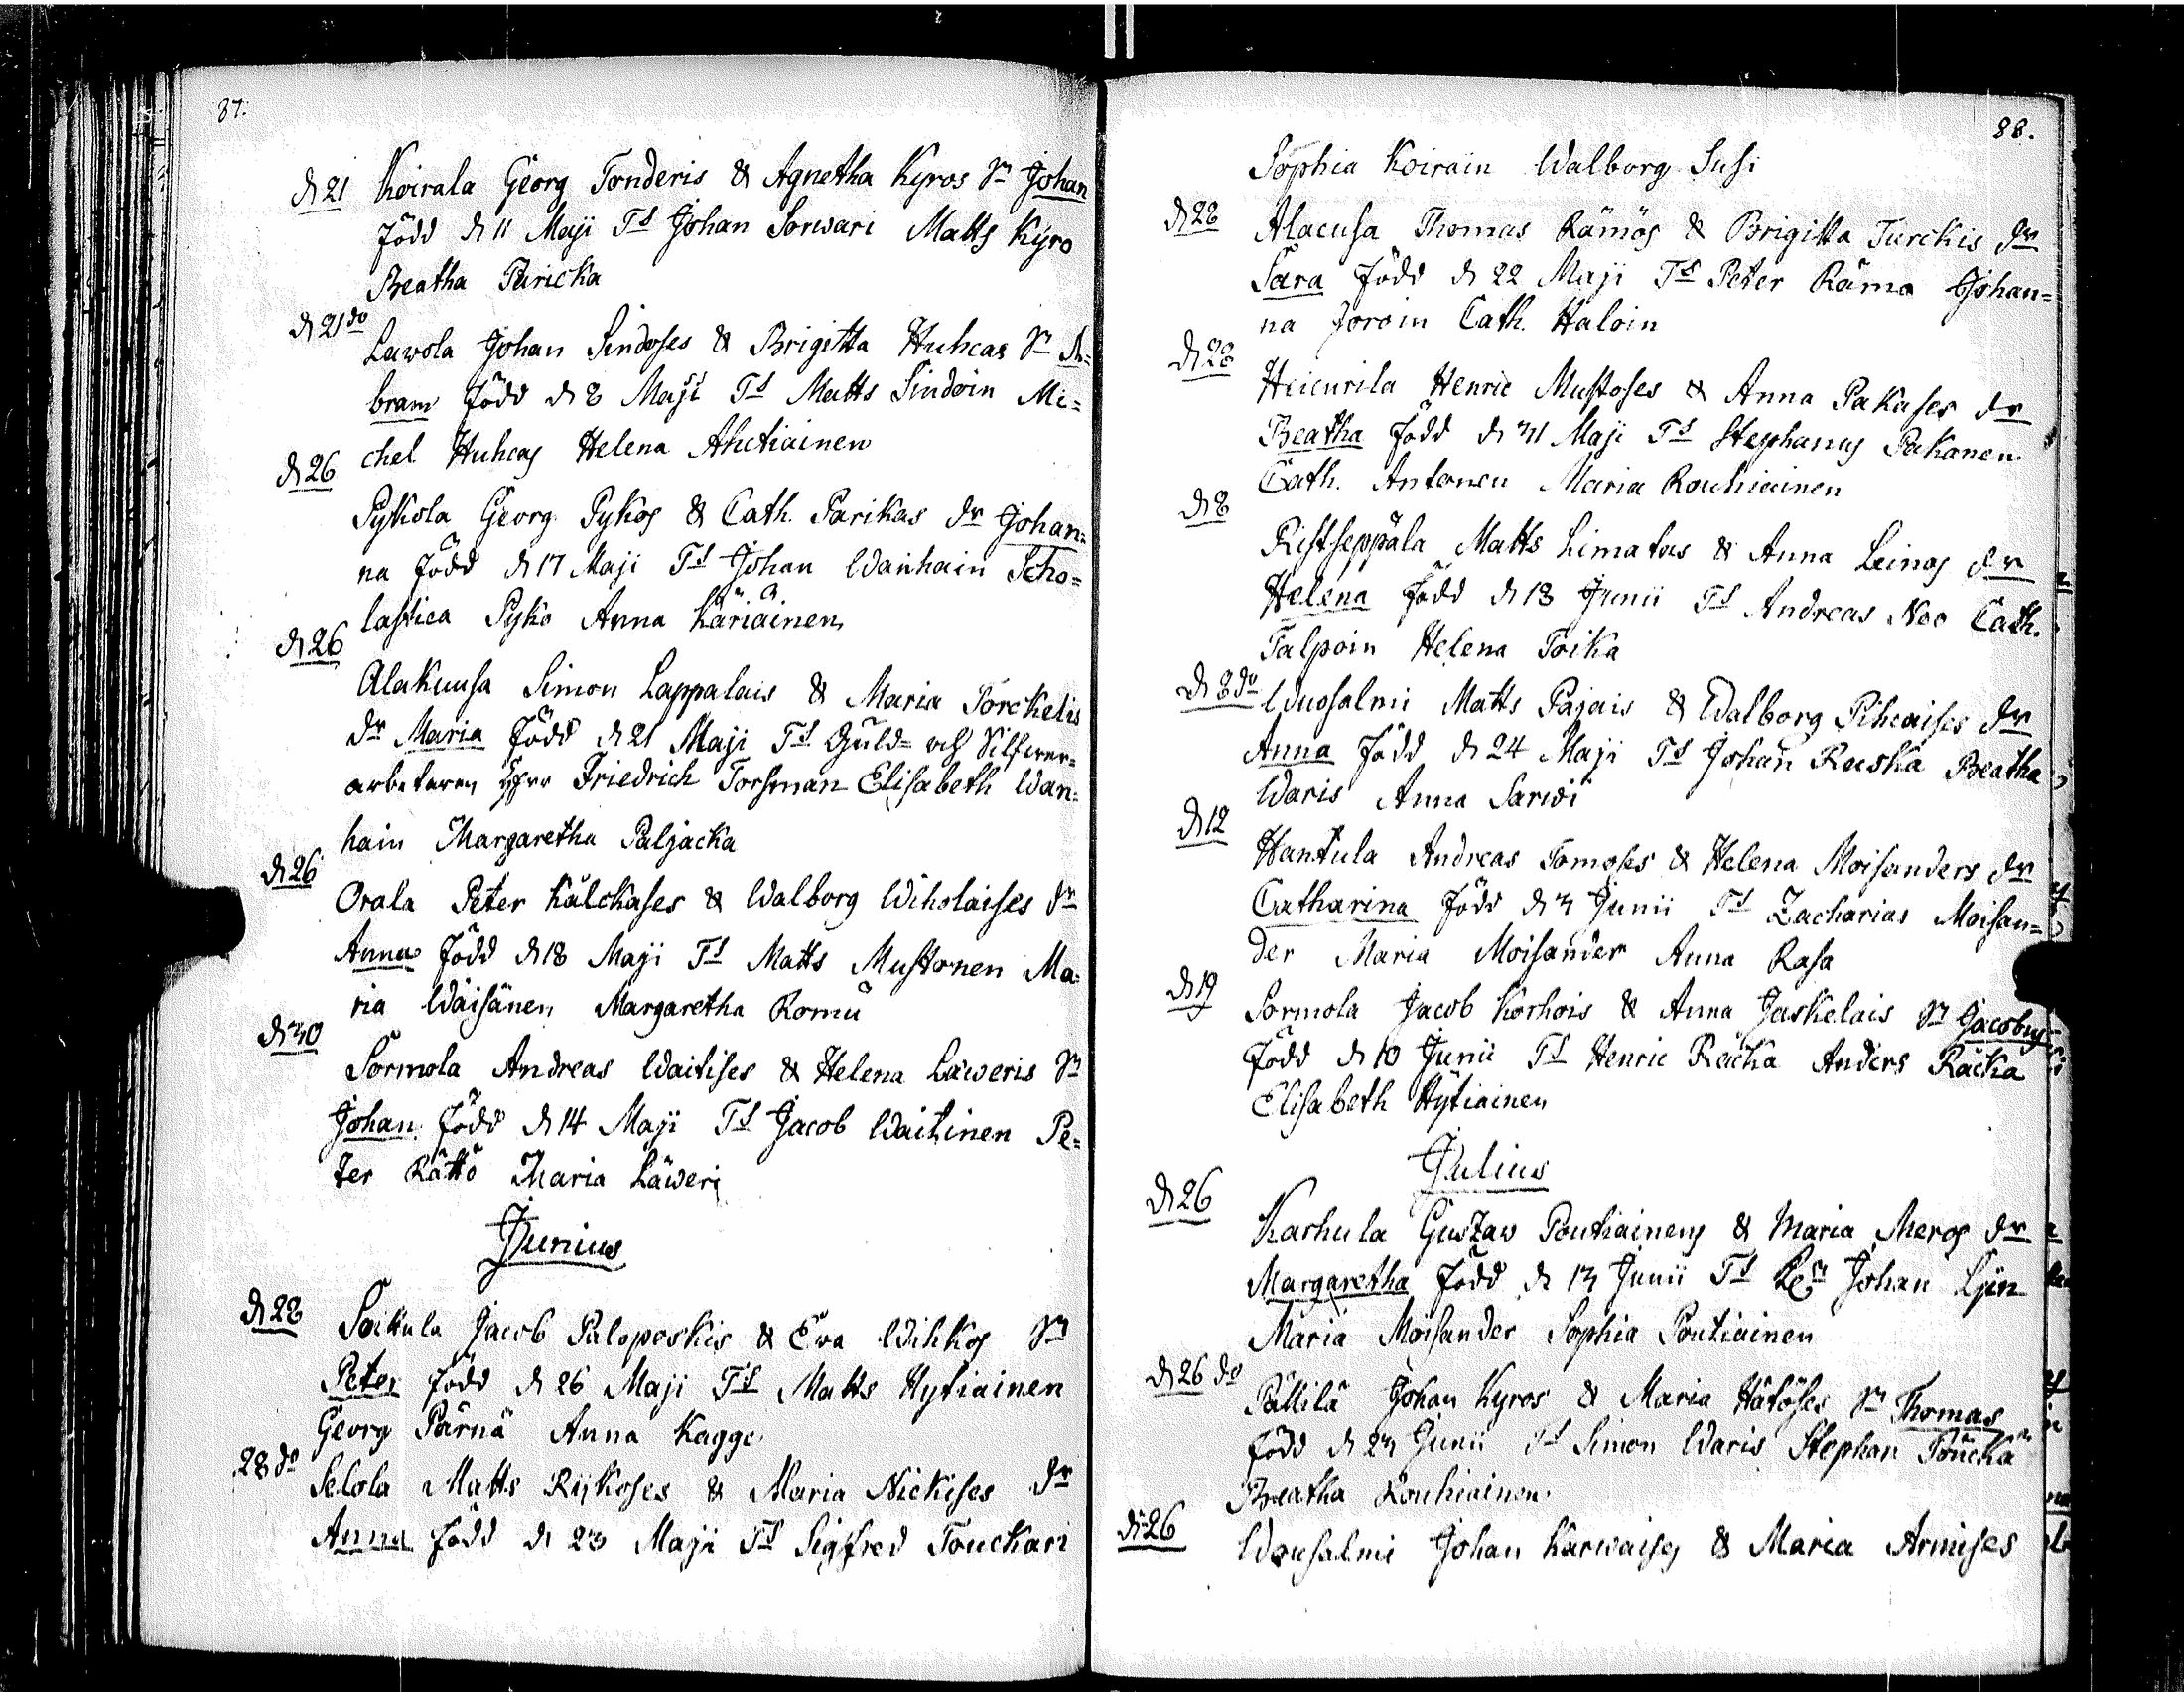 87.
d 21 Koirala Georg Tonderis & Agnetha Kyros Sn Johan
född d 11 Maji Ts Johan Sorwari Matts Kyro
Beatha Paricka
d 21 do Lawola Johan Sindoses & Brigitta Huhcas Sn A=
bram född d 8 Maji Ts Matts Sindoin Mi=
chel Huhcas Helena Ahctiainen
d 26
Pykola Georg Pykos & Cath. Parikas dr Johan=
na född d 17 Maji Ts Johan Wanhain Scho=
lastica Pyko Anna Käriäinen
d 26
Alakuusa Simon Lappalais & Maria Torckelis
dr Maria född d 21 Maji Ts Guld= och Silfwer=
arbetaren Herr Friedrich Forsman Elisabeth Wan=
hain Margaretha Paljacka
d 26
Orala Peter Kälckases & Walborg Wiholaises dr
Anna född d 18 Maji Ts Matts Mustonen Ma=
ria Wäisänen Margaretha Romu
d 30
Sormola Andreas Waitises & Helena Läweris Sn
Johan född d 14 Maji Ts Jacob Waitinen Pe=
ter Rättö Maria Läweri
Junius
d 28 Soikula Jacob Paloposkis & Eva Wihkos Sn
Peter född d 26 Maji Ts Matts Hytiainen
Georg Pärnä Anna Kagge
28 do
Selola Matts Rykoses & Maria Nickises dr
Anna född d 23 Maji Ts Sigfred Touckari
88.
Sophia Koirain Walborg Susi
d 28 Alacusa Thomas Rämös & Brigitta Turckis dr
Sara född d 22 Maji Ts Peter Rämö Johan=
na Joroin Cath. Haloin
d 28
Heicurila Henric Mustoses & Anna Pakases dr
Beatha född d 31 Maji Ts Stephanus Pakanen
Cath. Antonen Maria Rouhiainen
d 8
Ristseppäla Matts Limatas & Anna Leinos dr
Helena född d 13 Junii Ts Andreas Noo Cath.
Talpoin Helena Toika
d 8 do Wuosalmi Matts Pajais & Walborg Pihcaises dr
Anna född d 24 Maji Ts Johan Reeska Beatha
Waris Anna Sarwi
d 12
Hantula Andreas Tomoses & Helena Moisanders dr
Catharina född d 3 Junii Ts Zacharias Moisan=
der Maria Moisander Anna Rasa
d 19
Sormola Jacob Korhois & Anna Jaskelais Sn Jacobus
född d 10 Junii Ts Henric Räcka Anders Räcka
Elisabeth Hytiainen
Julius
d 26
Karhula Gustaw Poutiainens & Maria Meros dr
Margaretha född d 13 Junii Ts Johan
Maria Moisander Sophia Poutiainen
d 26 do
Pällilä Johan Kyros & Maria Hätöses Sn Thomas
född d 23 Junii Ts Simon Waris Stephan Toucka
Beatha Rouhiainen
d 26 Wousalmi Johan Karwaises & Maria Armises